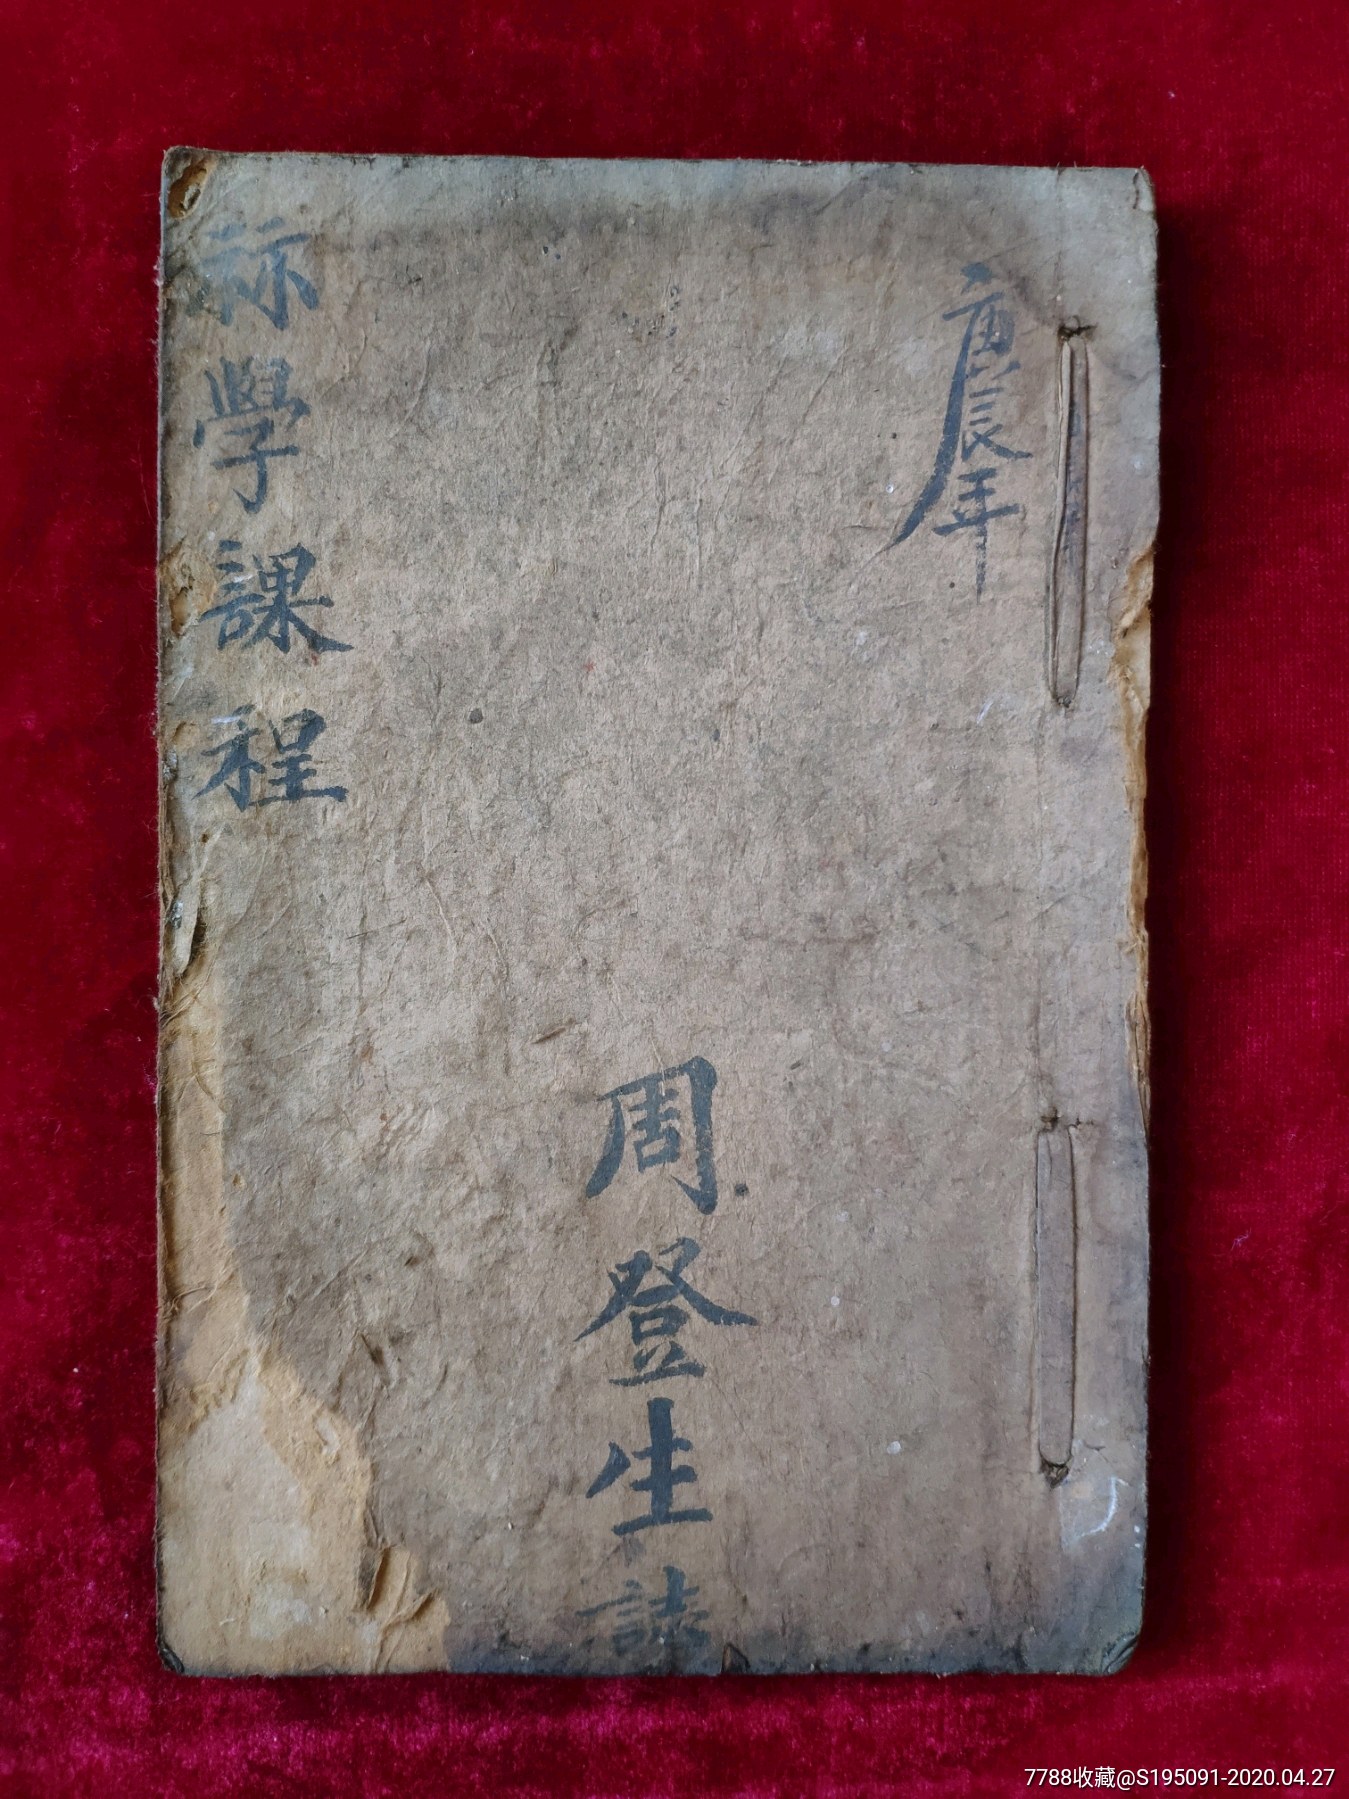 庚辰年
周登生誌
祘學課程
7788收藏@S195091-2020.04.27